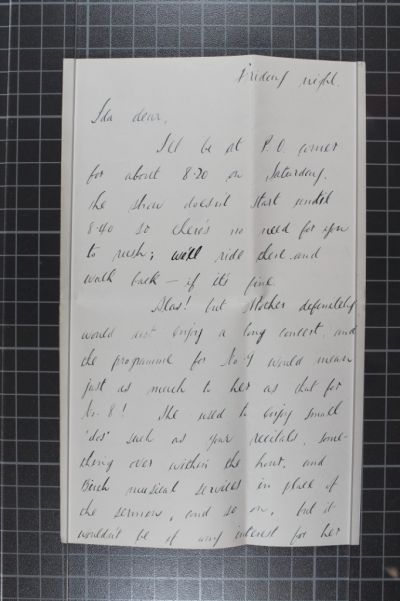 Friday night.
Ida dear,
I'll be at P.O. corner
for about 8.20 on Saturday.
The show doesn't start until
8.40 so there's no need for you
to rush; we'll ride there and
walk back — if it's fine
Alas! but Mother definitely
would not enjoy a long concert, and
the programme for No 9 would mean
just as much to her as that for
No. 8! She used to enjoy small
"dos" such as your recitals, some-
thing over within the hour, and
musical services in place of
the sermon, and so on, but it
wouldn't be of any interest for her